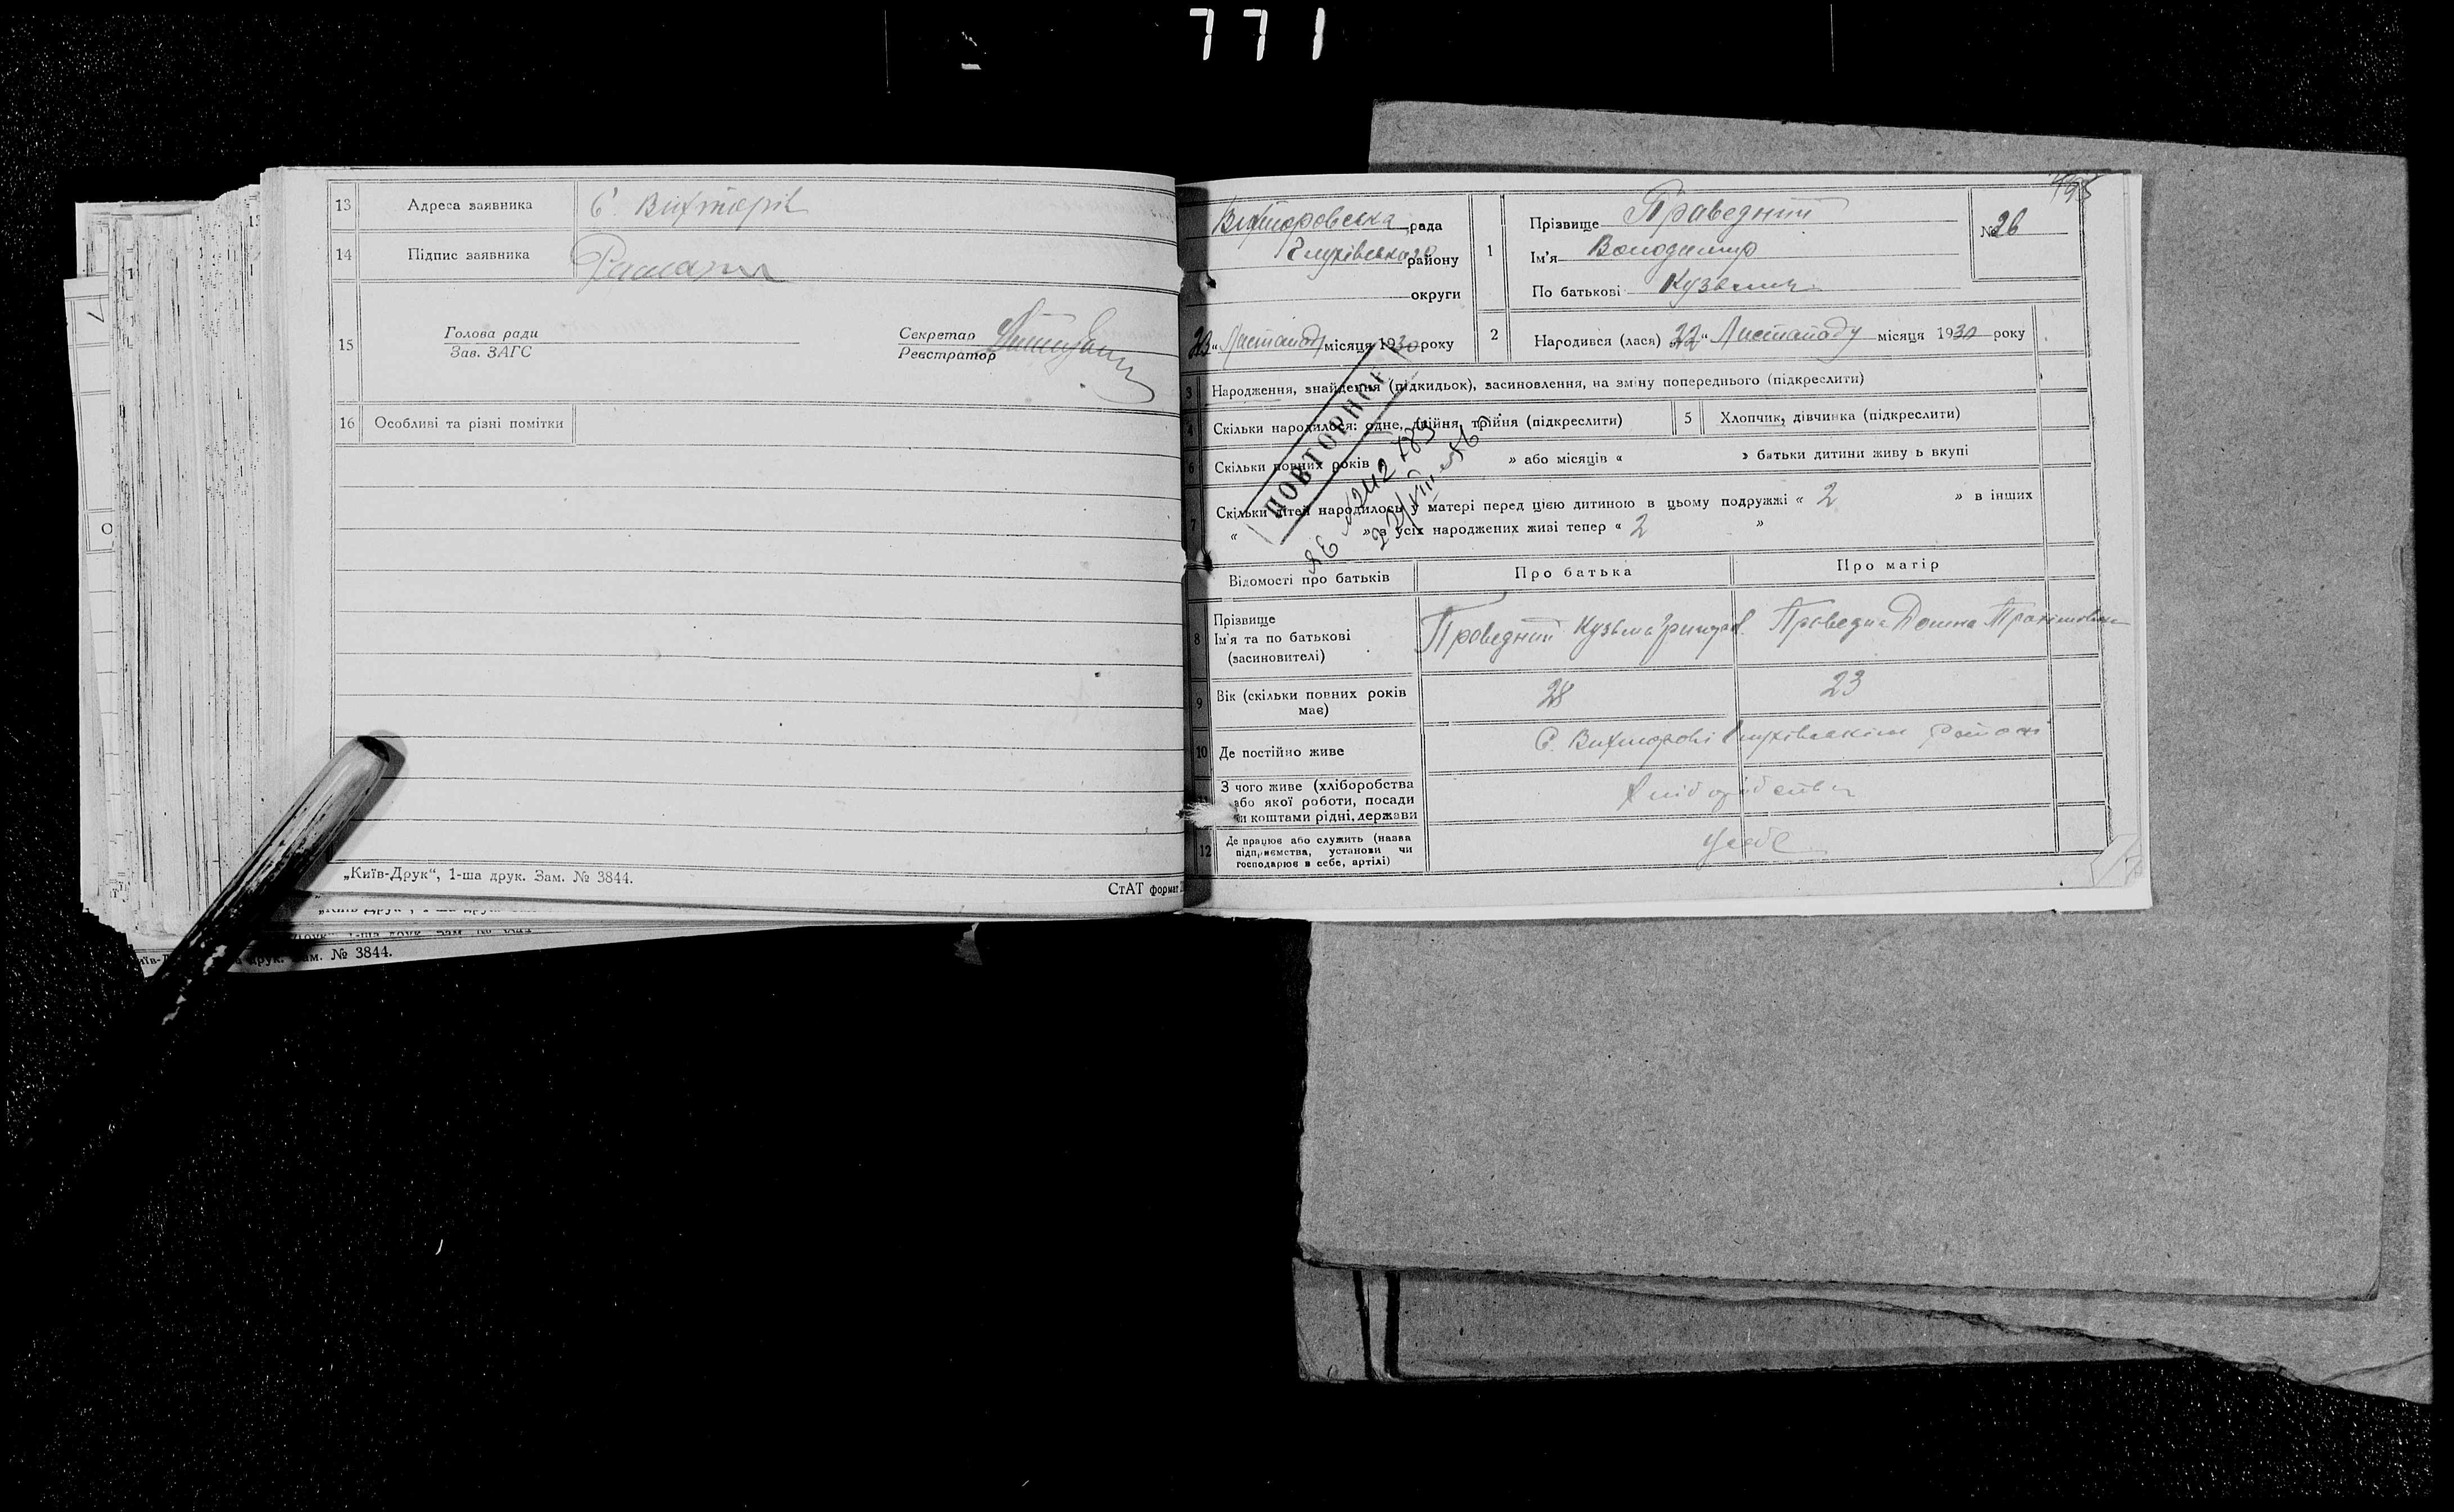 771
13 Адреса заявника С. Вихторів
14 Підпис заявника
15 Голова ради
Зав. ЗАГС
Секретар
Реєстратор
16 Особливі та різні помітки
„Київ-Друк“, 1-ша друк. Зам. № 3844.
СтАТ формат
№ 3844.
Вихторовська рада
Глухівського району
округи
23 „ Листопаду місяця 1930 року
1 Прізвище Праведний
Ім'я Володимир
По батькові Кузьмич
№ 26
2 Народився (лася) „22“ Листопаду місяця 1930 року
3 Народження, знайдення (підкидьок), засиновлення, на зміну попереднього (підкреслити)
4 Скільки народилося: одне, двійня, трійня (підкреслити)
5 Хлопчик, дівчинка (підкреслити)
6 Скільки повних років » або місяців « » батьки дитини живу ь вкупі
7 Скільки дітей народилось у матері перед цією дитиною в цьому подружжі « 2 » в інших
« » з усіх народжених живі тепер « 2 »
ПОВТОРНИЙ
Відомості про батьків Про батька Про матір
8 Прізвище
Ім'я та по батькові
(засиновителі)
Проведний Кузьма Григоров. Проведна Домна
9 Вік (скільки повних років
має)
28 23
10 Де постійно живе С. Вихторові Глухівським районі
З чого живе (хліборобства
або якої роботи, посади
чи коштами рідні, держави
Хліборобства
12 Де працює або служить (назва
підприємства, установи чи
господарює в себе, артілі)
У себе